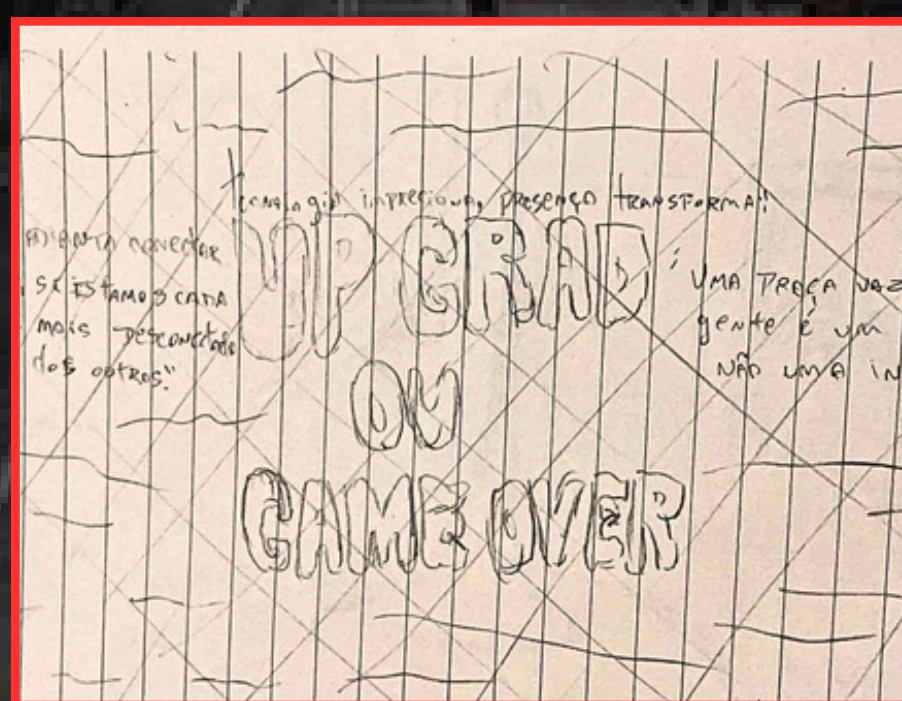 tecnologia impresiona, presença transforma!!
conectar
se estamos cada
mais desconectado
dos outros."
UP GRAD
OU
GAME OVER
UMA PRAÇA VAZ
gente é um
NÃO UMA IN